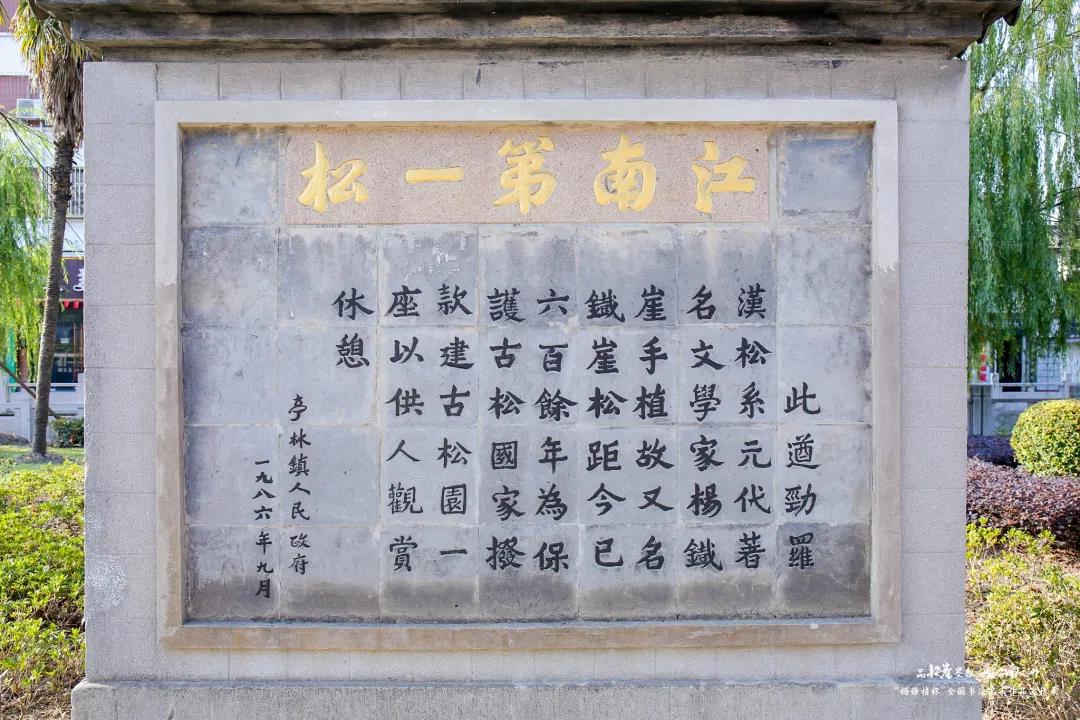 江南第一松
此遒勁羅
漢松系元代著
名文學家楊鐵
崖手植故又名
鐵崖松距今已
六百餘年為保
護古松國家撥
款建古松園一
座以供人觀賞
休憩
亭林鎮人民政府
一九八六年九月